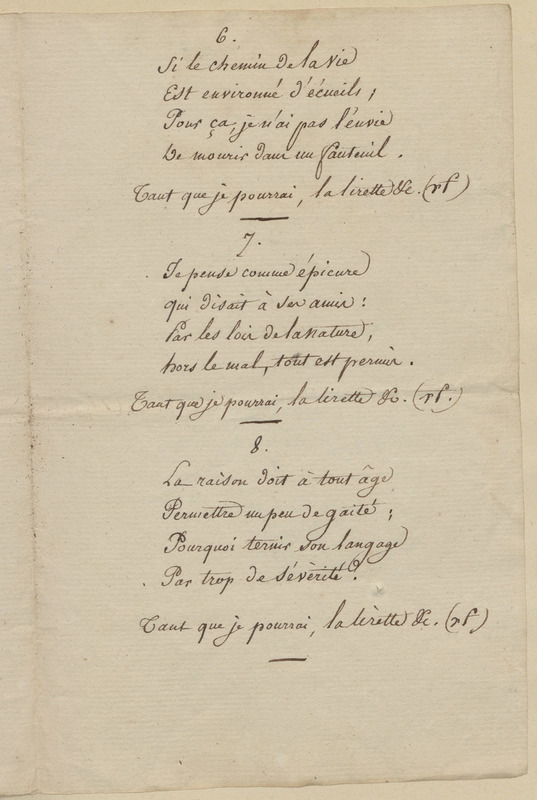 6.
Si le chemin de la vie
Est environné d'écueils ;
Pour ça, je n'ai pas l'envie
De mourir dans un fauteuil.
Tant que je pourrai, la lirette &c. (rf)
7.
Je pense comme épicure
qui disait à ses amis :
Par les loix de la nature,
hors le mal, tout est permis.
Tant que je pourrai, la lirette &c. (rf.)
8.
La raison doit à tout âge
Permettre un peu de gaité ;
Pourquoi ternir son langage
Par trop de sévèrité ?
Tant que je pourrai, la lirette &c. (rf)